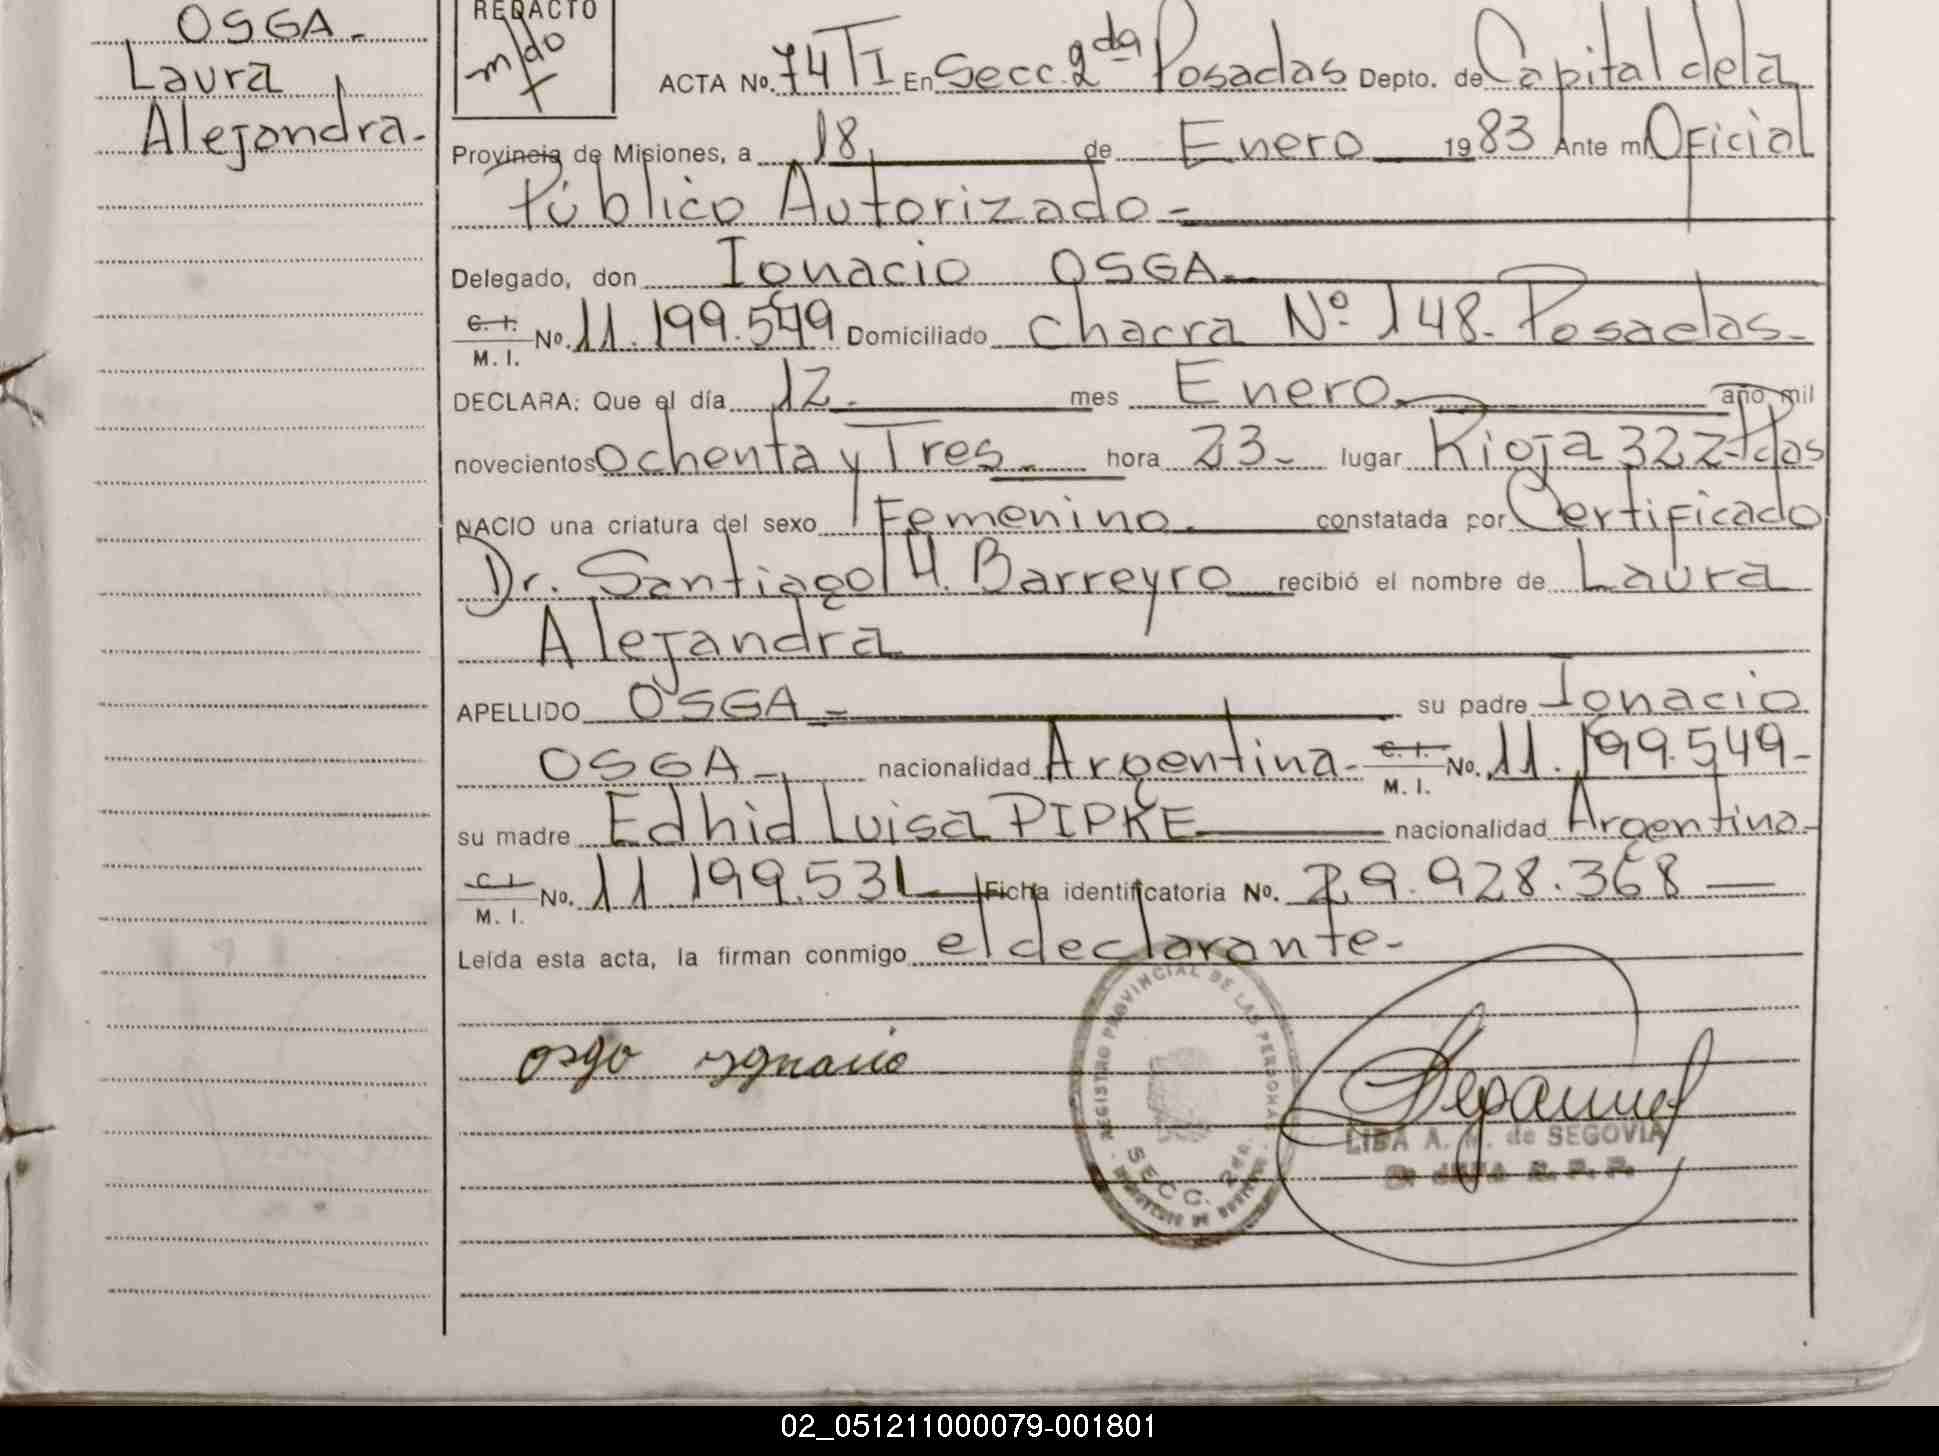 OSGA-
Laura
Alejandra-
REDACTO
ACTA No. 74 TI En Secc. 2da Posadas Depto. de Capital de la
Provincia de Misiones, a 18 de Enero 1983 Ante mi Oficial
Público Autorizado-
Delegado, don Ignacio OSGA-
C. I. M. I. No. 11.199.549 Domiciliado Chacra Nº 148- Posadas-
DECLARA: Que el día 12- mes Enero año mil
novecientos ochenta y Tres- hora 23- lugar Rioja 322-Pdas
NACIO una criatura del sexo Femenino- constatada por Certificado
Dr. Santiago H. Barreyro recibió el nombre de Laura
Alejandra
APELLIDO OSGA- su padre Ignacio
OSGA- nacionalidad Argentina- C. I. M. I. No. 11.199.549-
su madre Edhid Luisa PIPKE nacionalidad Argentina-
C. I. M. I. No. 11 199.531 Ficha identificatoria No. 29.928.368
Leída esta acta, la firman conmigo el declarante-
osga ygnacio
REGISTRO PROVINCIAL DE LAS PERSONAS
SECC. 2da.
LIBA A. M. de SEGOVIA
R. P. P.
02_051211000079-001801